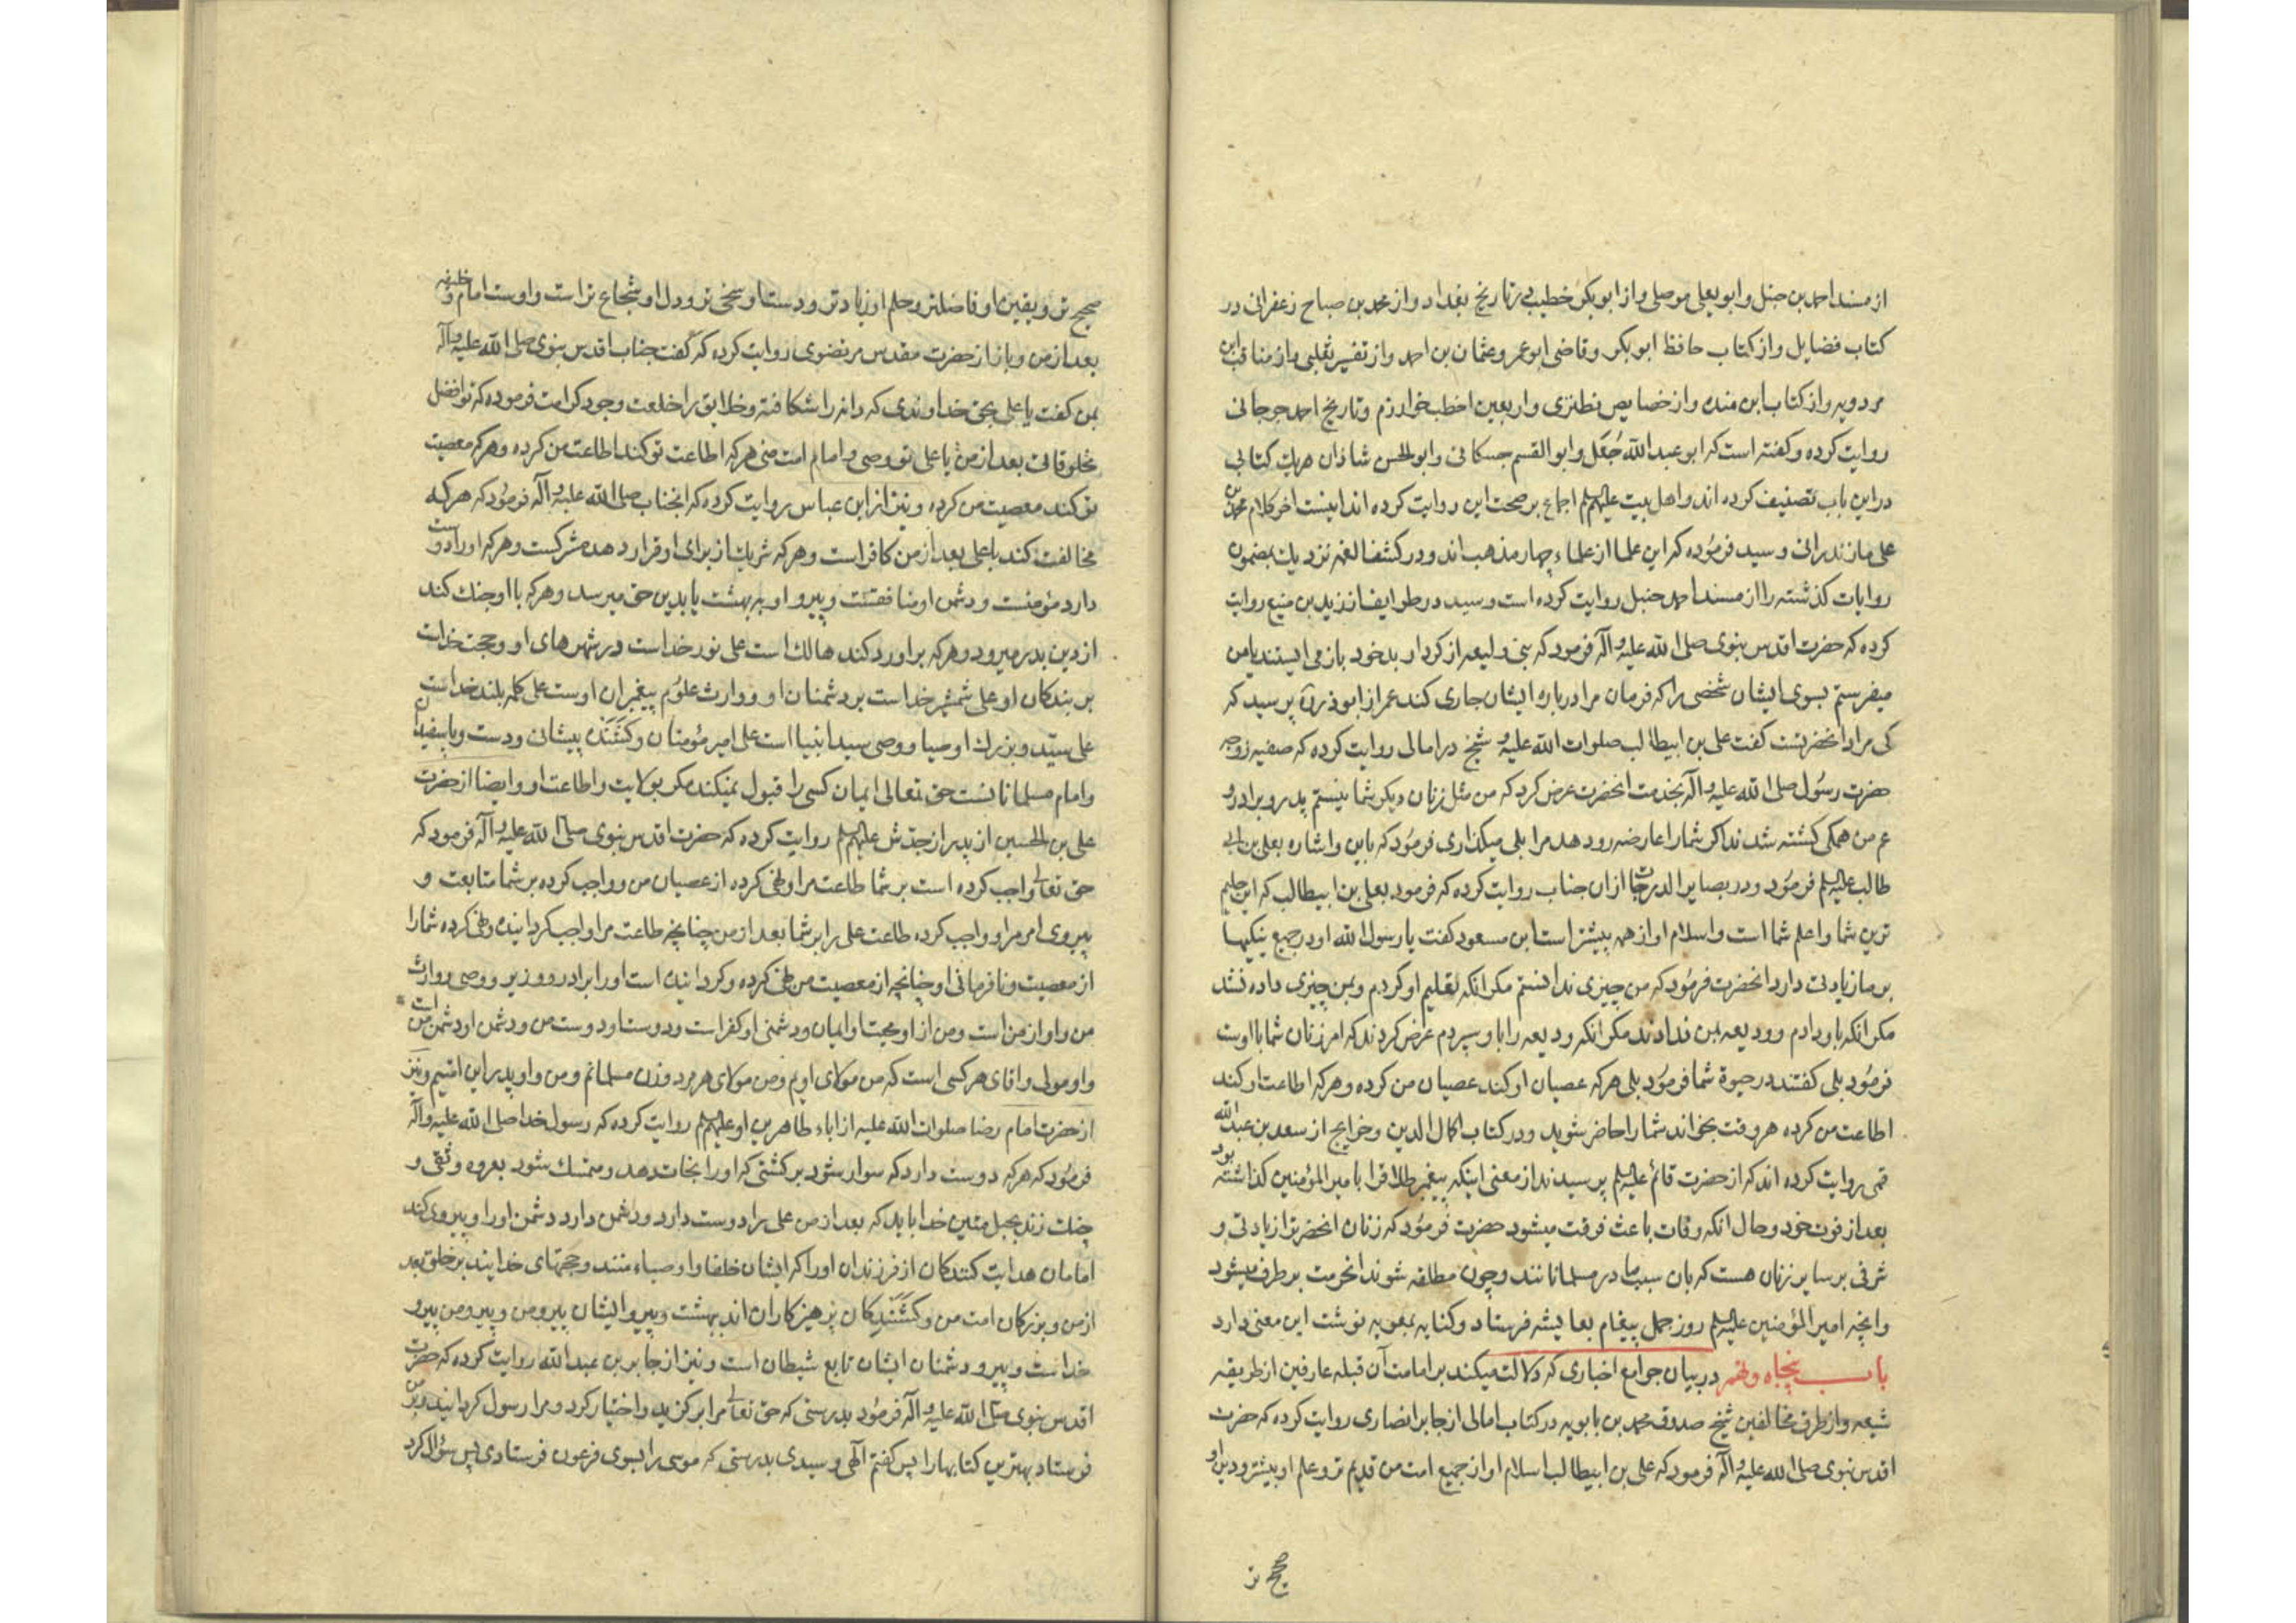 از مسند احمد بن حنبل و ابو یعلی موصلی و از ابو بکر خطیب در تاریخ بغداد و از محمد بن صباح زعفرانی در
کتاب فضایل و از کتاب حافظ ابو بکر و قاضی ابو عمرو عثمان بن احمد و از تفسیر ثعلبی و از مناقب ابن
مردویه و از کتاب ابن منده و از خصایص نطنزی و اربعین اخطب خوارزم و تاریخ احمد جرجانی
روایت کرده و کفته است که ابو عبد الله جُعَل و ابو القسم حسکانی و ابو الحسن شاذان هریک کتابی
در این باب تصنیف کرده اند و اهل بیت علیهم السلم اجماع بر صحت این روایت کرده اند اینست اخر کلام محمد بن
علی مازندرانی و سید فرموده که این علما از علماء چهار مذهب اند و در کشف الغمه نزدیک بمضمون
روایات کذشته را از مسند احمد حنبل روایت کرده است و سید در طرایف از زید بن منیع روایت
کرده که حضرت اقدس نبوی صلی الله علیه و آله فرمود که بنی ولیعه از کردار بد خود باز می ایستند یا من
میفرستم بسوی ایشان شخصی را که فرمان مرا درباره ایشان جاری کند عمر از ابوذر پرسید که
کی مراد انحضرتست کفت علی بن ابیطالب صلوات الله علیه و شیخ در امالی روایت کرده که صفیه زوجه
حضرت رسول صلی الله علیه و آله بخدمت انحضرت عرض کرد که من مثل زنان دیکر شما نیستم پدر و برادر و
عم من همکی کشته شدند اکر شما را عارضه رو دهد مرا بکی میکذاری فرمود که باین و اشاره بعلی بن ابی
طالب علیه السلم فرمود و در بصایر الدرجات از ان جناب روایت کرده که فرمود بعلی بن ابیطالب که این حلیم
ترین شما و اعلم شما است و اسلام او از همه پیشتر است ابن مسعود کفت یا رسول الله او در جمیع نیکیها
بر ما زیادتی دارد انحضرت فرمود که من چیزی ندانستم مکر انکه تعلیم او کردم و بمن چیزی داده نشد
مکر انکه باو دادم و ودیعه بمن ندادند مکر انکه ودیعه را باو سپردم عرض کردند که امر زنان شما با اوست
فرمود بلی کفتند در حیوة شما فرمود بلی هرکه عصیان او کند عصیان من کرده و هرکه اطاعت او کند
اطاعت من کرده هر وقت بخواند شما را حاضر شوید و در کتاب اکمال الدین و خرایج از سعد بن عبد الله
قمی روایت کرده اند که از حضرت قائم علیه السلم پرسیدند از معنی اینکه پیغمبر طلاق را با میر المؤمنین کذاشته بود
بعد از فوت خود و حال انکه وفات باعث فرقت میشود حضرت فرمود که زنان انحضرت را زیادتی و
شرفی بر سایر زنان هست که بان سبب مادر مسلمانانند و چون مطلقه شوند انحرمت بر طرف میشود
و انچه امیر المؤمنین علیه السلم روز جمل پیغام بعایشه فرستاد و کنایه بمعویه نوشت این معنی دارد
باب پنجاه و نهم در بیان جوامع اخباری که دلالت میکند بر امامت آن قبله عارفین از طریقه
شیعه و از طرق مخالفین شیخ صدوق محمد بن بابویه در کتاب امالی از جابر انصاری روایت کرده که حضرت
اقدس نبوی صلی الله علیه و آله فرمود که علی بن ابیطالب اسلام او از جمیع امت من قدیم تر و علم او بیشتر و دین او
صحیح تر
صحیح تر و یقین او فاضلتر و حلم او زیادتر و دست او سخی تر و دل او شجاع تر است و اوست امام و خلیفه
بعد از من و باز از حضرت مقدس مرتضوی روایت کرده که کفت جناب اقدس نبوی صلی الله علیه و آله
بمن کفت یا علی بحق خداوندی که دانه را شکافته و خلایق را خلعت وجود کرامت فرموده که تو افضل
مخلوقاتی بعد از من یا علی تو وصی و امام امت منی هرکه اطاعت تو کند اطاعت من کرده و هرکه معصیت
تو کند معصیت من کرده و نیز از ابن عباس روایت کرده که انجناب صلی الله علیه و آله فرمود که هرکه
مخالفت کند با علی بعد از من کافر است و هرکه شریک از برای او قرار دهد مشرکست و هرکه او را دوست
دارد مؤمنست و دشمن او منافقست و پیرو او به بهشت یا بدین حق میرسد و هرکه با او جنک کند
از دین بدر میرود و هرکه بر او رد کند هالک است علی نور خداست در شهرهای او و حجت خداست
بر بندکان او علی شمشیر خداست بر دشمنان او و وارث علوم پیغمبران اوست علی کلمه بلند خداست
علی سیّد و بزرک اوصیا و وصی سید انبیا است علی امیر مؤمنان و کشنده پیشانی و دست و پا سفیدان
و امام مسلمانانست حق تعالی ایمان کسی را قبول نمیکند مکر بولایت و اطاعت او و ایضا از حضرت
علی بن الحسین از پدر از جدش علیهم السلم روایت کرده که حضرت اقدس نبوی صلی الله علیه و آله فرمود که
حق تعالی واجب کرده است بر شما طاعت مرا و نهی کرده از عصیان من و واجب کرده بر شما متابعت و
پیروی امر مرا و واجب کرده طاعت علی را بر شما بعد از من چنانچه طاعت مرا واجب کردانیده و نهی کرده شما را
از معصیت و نافرمانی او چنانچه از معصیت من نهی کرده و کردانیده است او را برادر و وزیر و وصی و وارث
من و او از من است و من از او محبت او ایمان و دشمنی او کفر است و دوست او دوست من و دشمن او دشمن من است
و او مولی و اقای هر کسی است که من مولای اویم و من مولای هر مرد و زن مسلمانم و من و او پدر این امتیم و نیز
از حضرت امام رضا صلوات الله علیه از اباء طاهرین او علیهم السلم روایت کرده که رسول خدا صلی الله علیه و آله
فرمود که هرکه دوست دارد که سوار شود بر کشتی که او را نجات دهد و متمسک شود بعروه وثقی و
چنک زند بحبل متین خدا باید که بعد از من علی را دوست دارد و دشمن دارد دشمن او را و پیروی کند
امامان هدایت کنندکان از فرزندان او را که ایشان خلفا و اوصیاء منند و حجتهای خدایند بر خلق بعد
از من و بزرکان امت من و کشنندکان پرهیزکاران اند ببهشت و پیرو ایشان پیرو من و پیرو من پیرو
خداست و پیرو دشمنان ایشان تابع شیطان است و نیز از جابر بن عبد الله روایت کرده که حضرت
اقدس نبوی صلی الله علیه و آله فرمود بدرستی که حق تعالی مرا برکزید و اختیار کرد و مرا رسول کردانید و بر من
فرستاد بهترین کتابها را پس کفتم الهی و سیدی بدرستی که موسی را بسوی فرعون فرستادی پس سؤال کرد